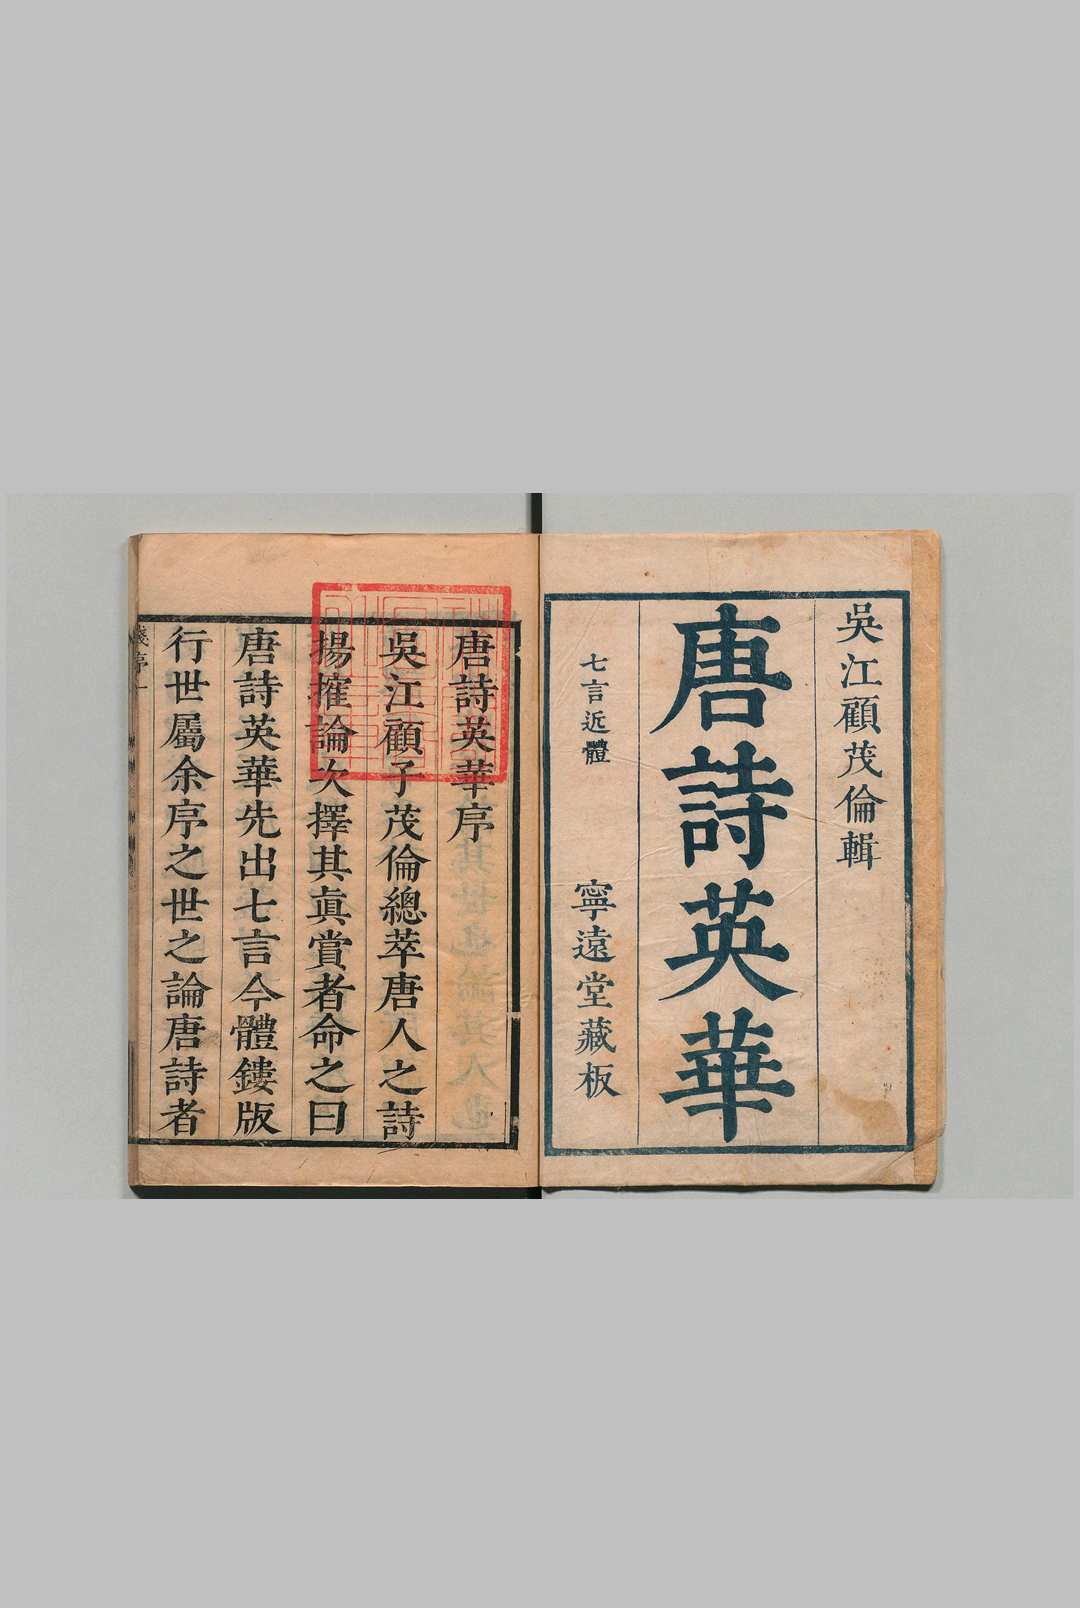 吳江顧茂倫輯
唐詩英華
七言近體
寧遠堂藏板
唐詩英華序
吳江顧子茂倫總萃唐人之詩
揚搉論次擇其眞賞者命之曰
唐詩英華先出七言今體鏤版
行世屬余序之世之論唐詩者
錢序一